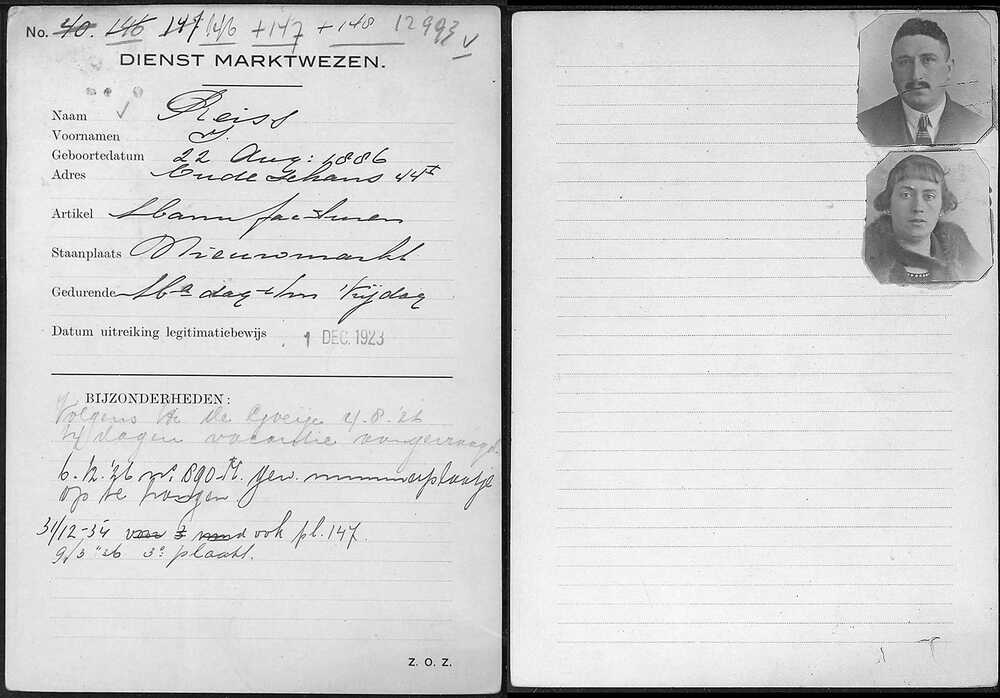 No. 40. 146 147 146 +147 +148 12993
DIENST MARKTWEZEN.
Naam Reiss
Voornamen J.
Geboortedatum 22 Aug: 1886
Adres Oude Schans 44 I
Artikel Manufacturen
Staanplaats Nieuwmarkt
Gedurende Ma dag t/m Vrijdag
Datum uitreiking legitimatiebewijs 1 DEC. 1923
BIJZONDERHEDEN:
Volgens de 4.8.'26
14 dagen vacantie aangevraagd.
6.12.'26 no. 890 M. gew. nummerplaatje
op te hangen
31/12-34 ook pl. 147.
9/3 '36 3e plaats.
Z. O. Z.